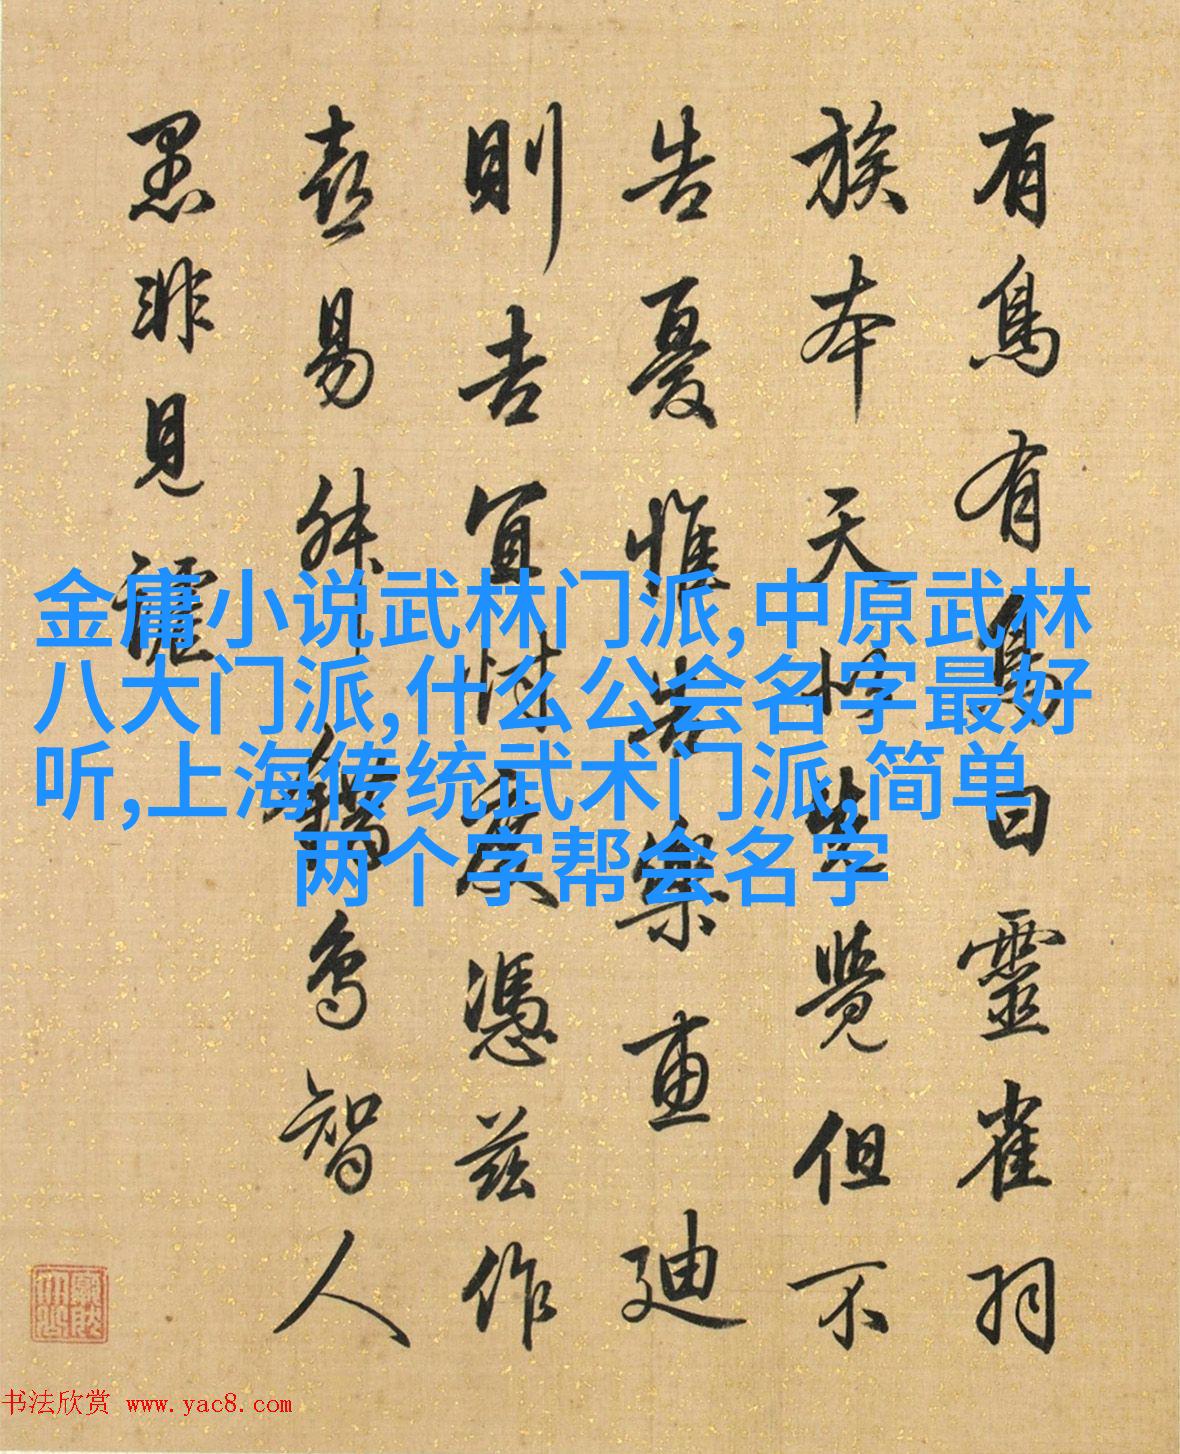 有鳥有鳥曰靈雀羽
族本天性覺但不
告憂惟告樂惠迪
則吉宜忖度憑茲作
喜易鳥智人
愚非見
金庸小说武林门派,中原武林
八大门派,什么公会名字最好
听,上海传统武术门派,简单
两个字帮会名字
书法欣赏 www.yac8.com